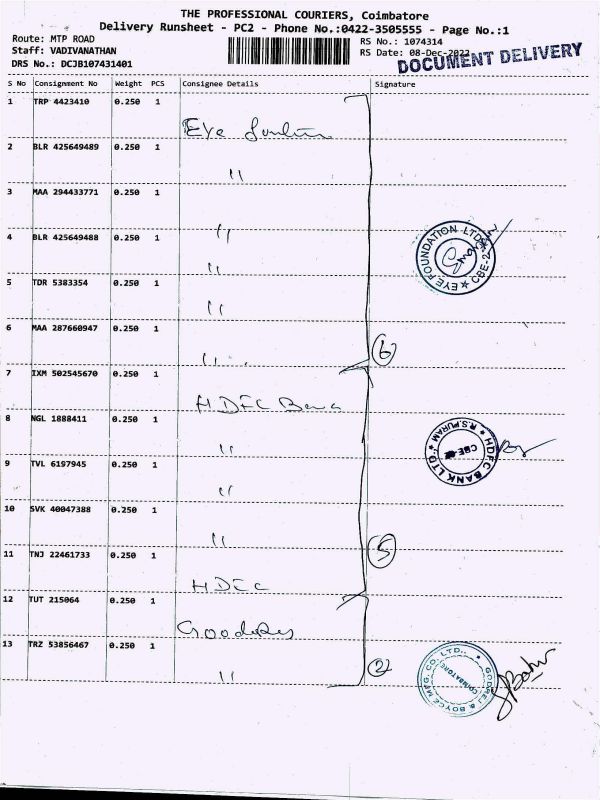 THE PROFESSIONAL COURIERS, Coimbatore
Delivery Runsheet - PC2 - Phone No.:0422-3505555 - Page No.:1
Route: MTP ROAD
RS No.: 1074314
Staff: VADIVANATHAN
RS Date: 08-Dec-2022
DRS No.: DCJB107431401
DOCUMENT DELIVERY
S No Consignment No Weight PCS Consignee Details Signature
1 TRP 4423410 0.250 1
Eye
2 BLR 425649489 0.250 1
"
3 MAA 294433771 0.250 1
"
4 BLR 425649488 0.250 1
"
EYE FOUNDATION LTD ★ CBE-2 ★
5 TDR 5383354 0.250 1
"
6 MAA 287660947 0.250 1
"
6
7 IXM 502545670 0.250 1
HDFC Bank
8 NGL 1888411 0.250 1
"
HDFC BANK LTD ★ R.S.PURAM ★
CBE-
9 TVL 6197945 0.250 1
"
10 SVK 40047388 0.250 1
"
5
11 TNJ 22461733 0.250 1
HDFC
12 TUT 215064 0.250 1
13 TRZ 53856467 0.250 1
"
2
GODREJ & BOYCE MFG. CO. LTD.,
COIMBATORE